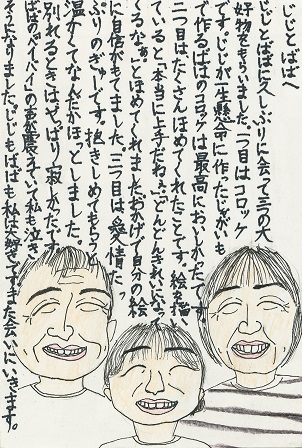 じじとばばへ
じじとばばに久しぶりに会って三つの大
好物をもらいました。一つ目はコロッケ
です。じじが一生懸命に作ったじゃがいも
で作るばばのコロッケは最高においしかったです。
二つ目はたくさんほめてくれたことです。絵を描い
ていると「本当に上手だねぇ」「どんどんきれいになって
くるなぁ。」とほめてくれました。おかげで自分の絵
に自信がもてました。三つ目は愛情たっ
ぷりのぎゅーです。抱きしめてもらうと
温かくてなんだかほっとしました。
別れるときはやっぱり寂しかったです。
ばばの「バイバイ」の声が震えていて私も泣き
そうになりました。じじもばばも私は大好きです。また会いにいきます。